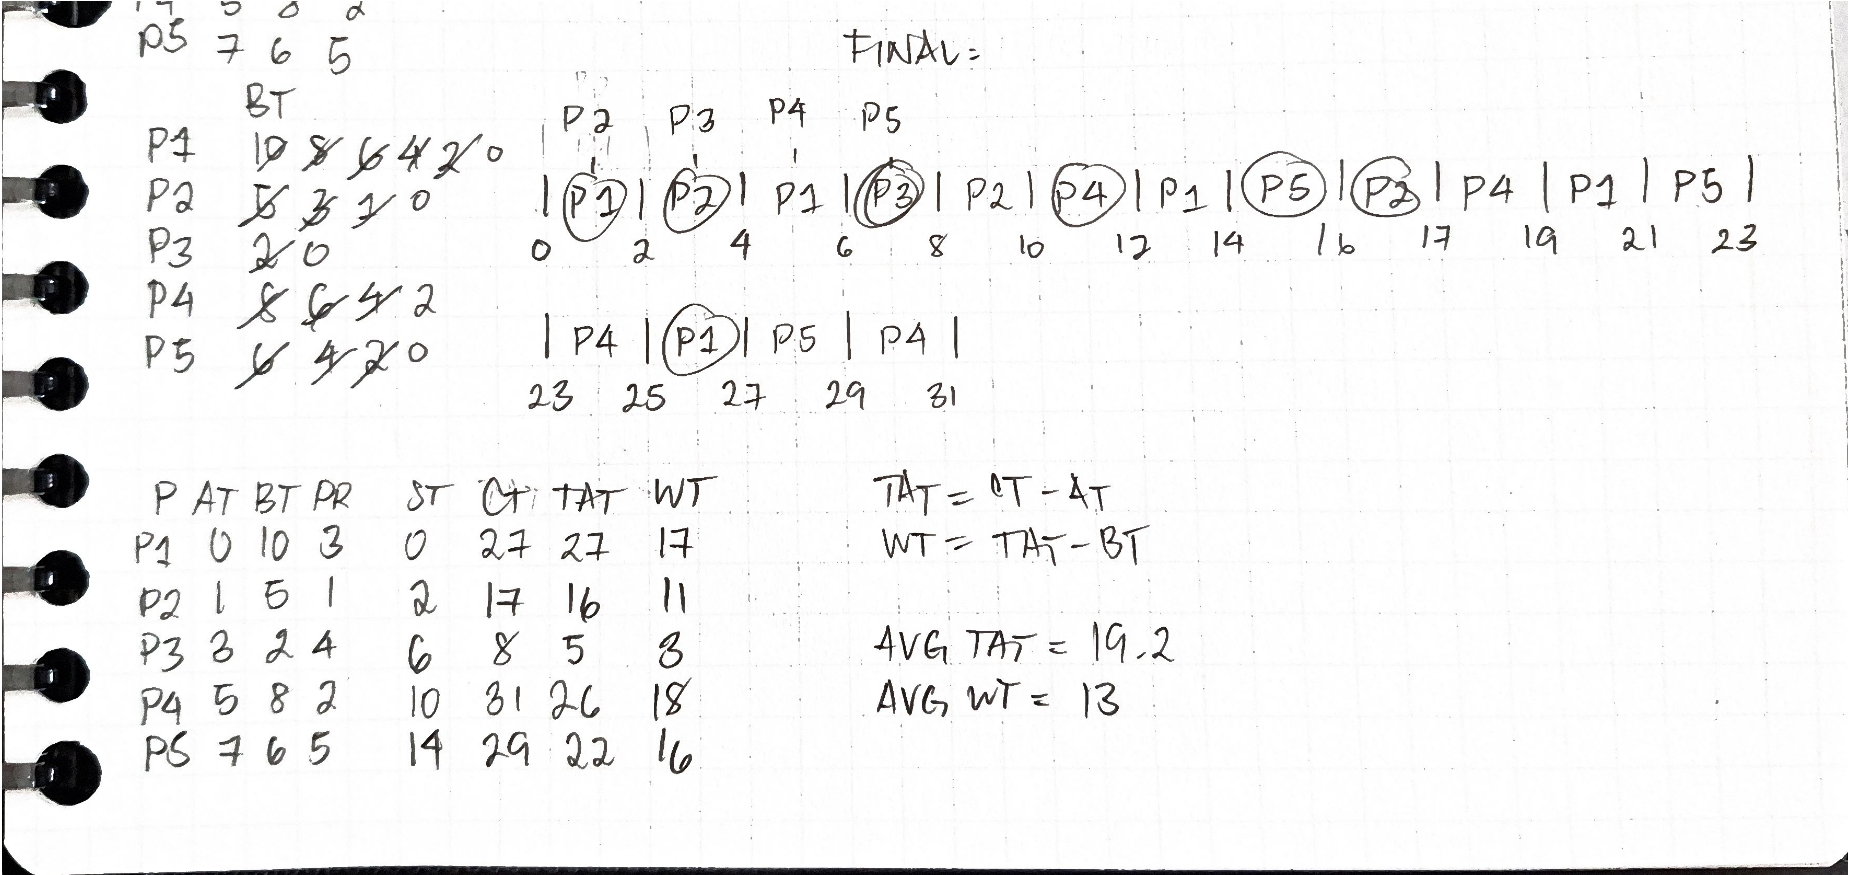 P5 7 6 5
FINAL:
BT
P2 P3 P4 P5
P1 10 8 6 4 2 0
P2 5 3 1 0
| P1 | P2 | P1 | P3 | P2 | P4 | P1 | P5 | P2 | P4 | P1 | P5 |
P3 2 0
0 2 4 6 8 10 12 14 16 17 19 21 23
P4 8 6 4 2
P5 6 4 2 0
| P4 | P1 | P5 | P4 |
23 25 27 29 31
P AT BT PR ST CT TAT WT
P1 0 10 3 0 27 27 17
P2 1 5 1 2 17 16 11
P3 3 2 4 6 8 5 3
P4 5 8 2 10 31 26 18
P5 7 6 5 14 29 22 16
TAT = CT - AT
WT = TAT - BT
AVG TAT = 19.2
AVG WT = 13